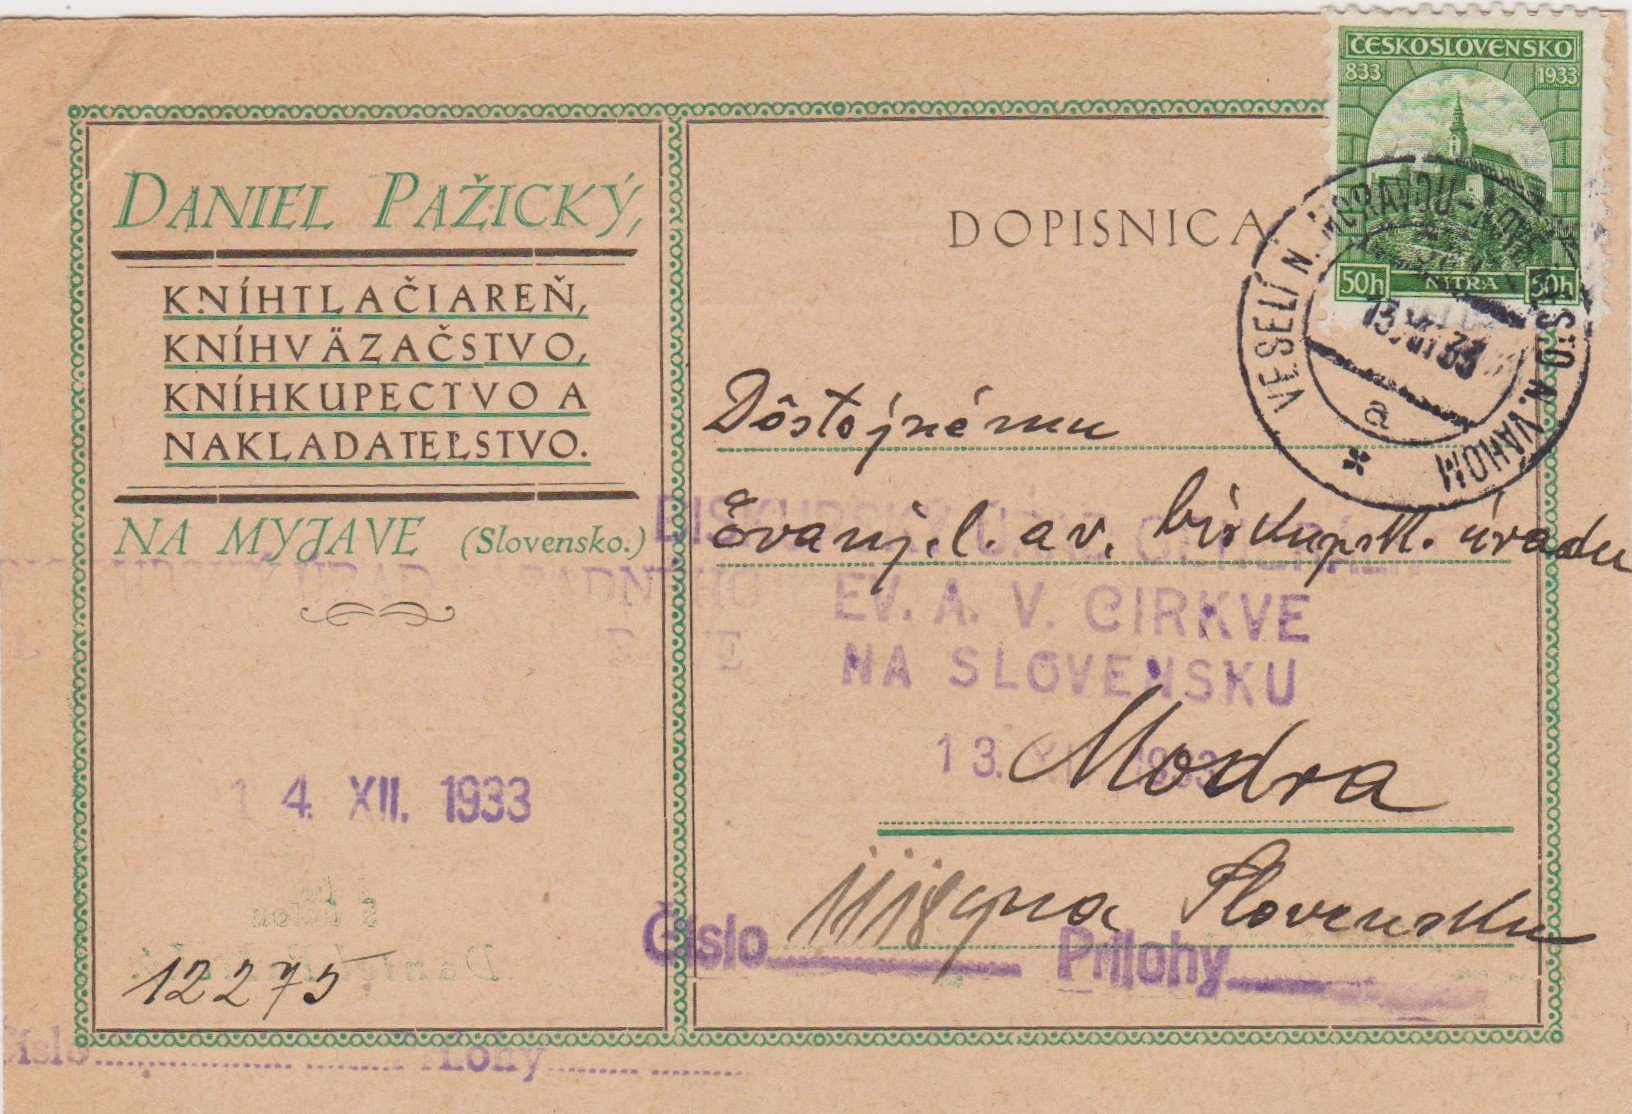 DANIEL PAŽICKÝ,
KNÍHTLAČIAREŇ,
KNÍHVÄZAČSTVO,
KNÍHKUPECTVO A
NAKLADATEĽSTVO.
NA MYJAVE (Slovensko.)
14. XII. 1933
12275
Číslo Prílohy
DOPISNICA
ČESKOSLOVENSKO
833 1933
50h NITRA 50h
VESELÍ N. MORAVOU - NOVÉ MESTO N. VÁHOM
13.XII.33
a
Dôstojnému
Evanj. l. a v. biskupsk. úradu
BISKUPSKÝ ÚRAD
EV. A. V. CIRKVE
NA SLOVENSKU
13. XII. 1933
Modra
na Slovensku
Číslo Prílohy